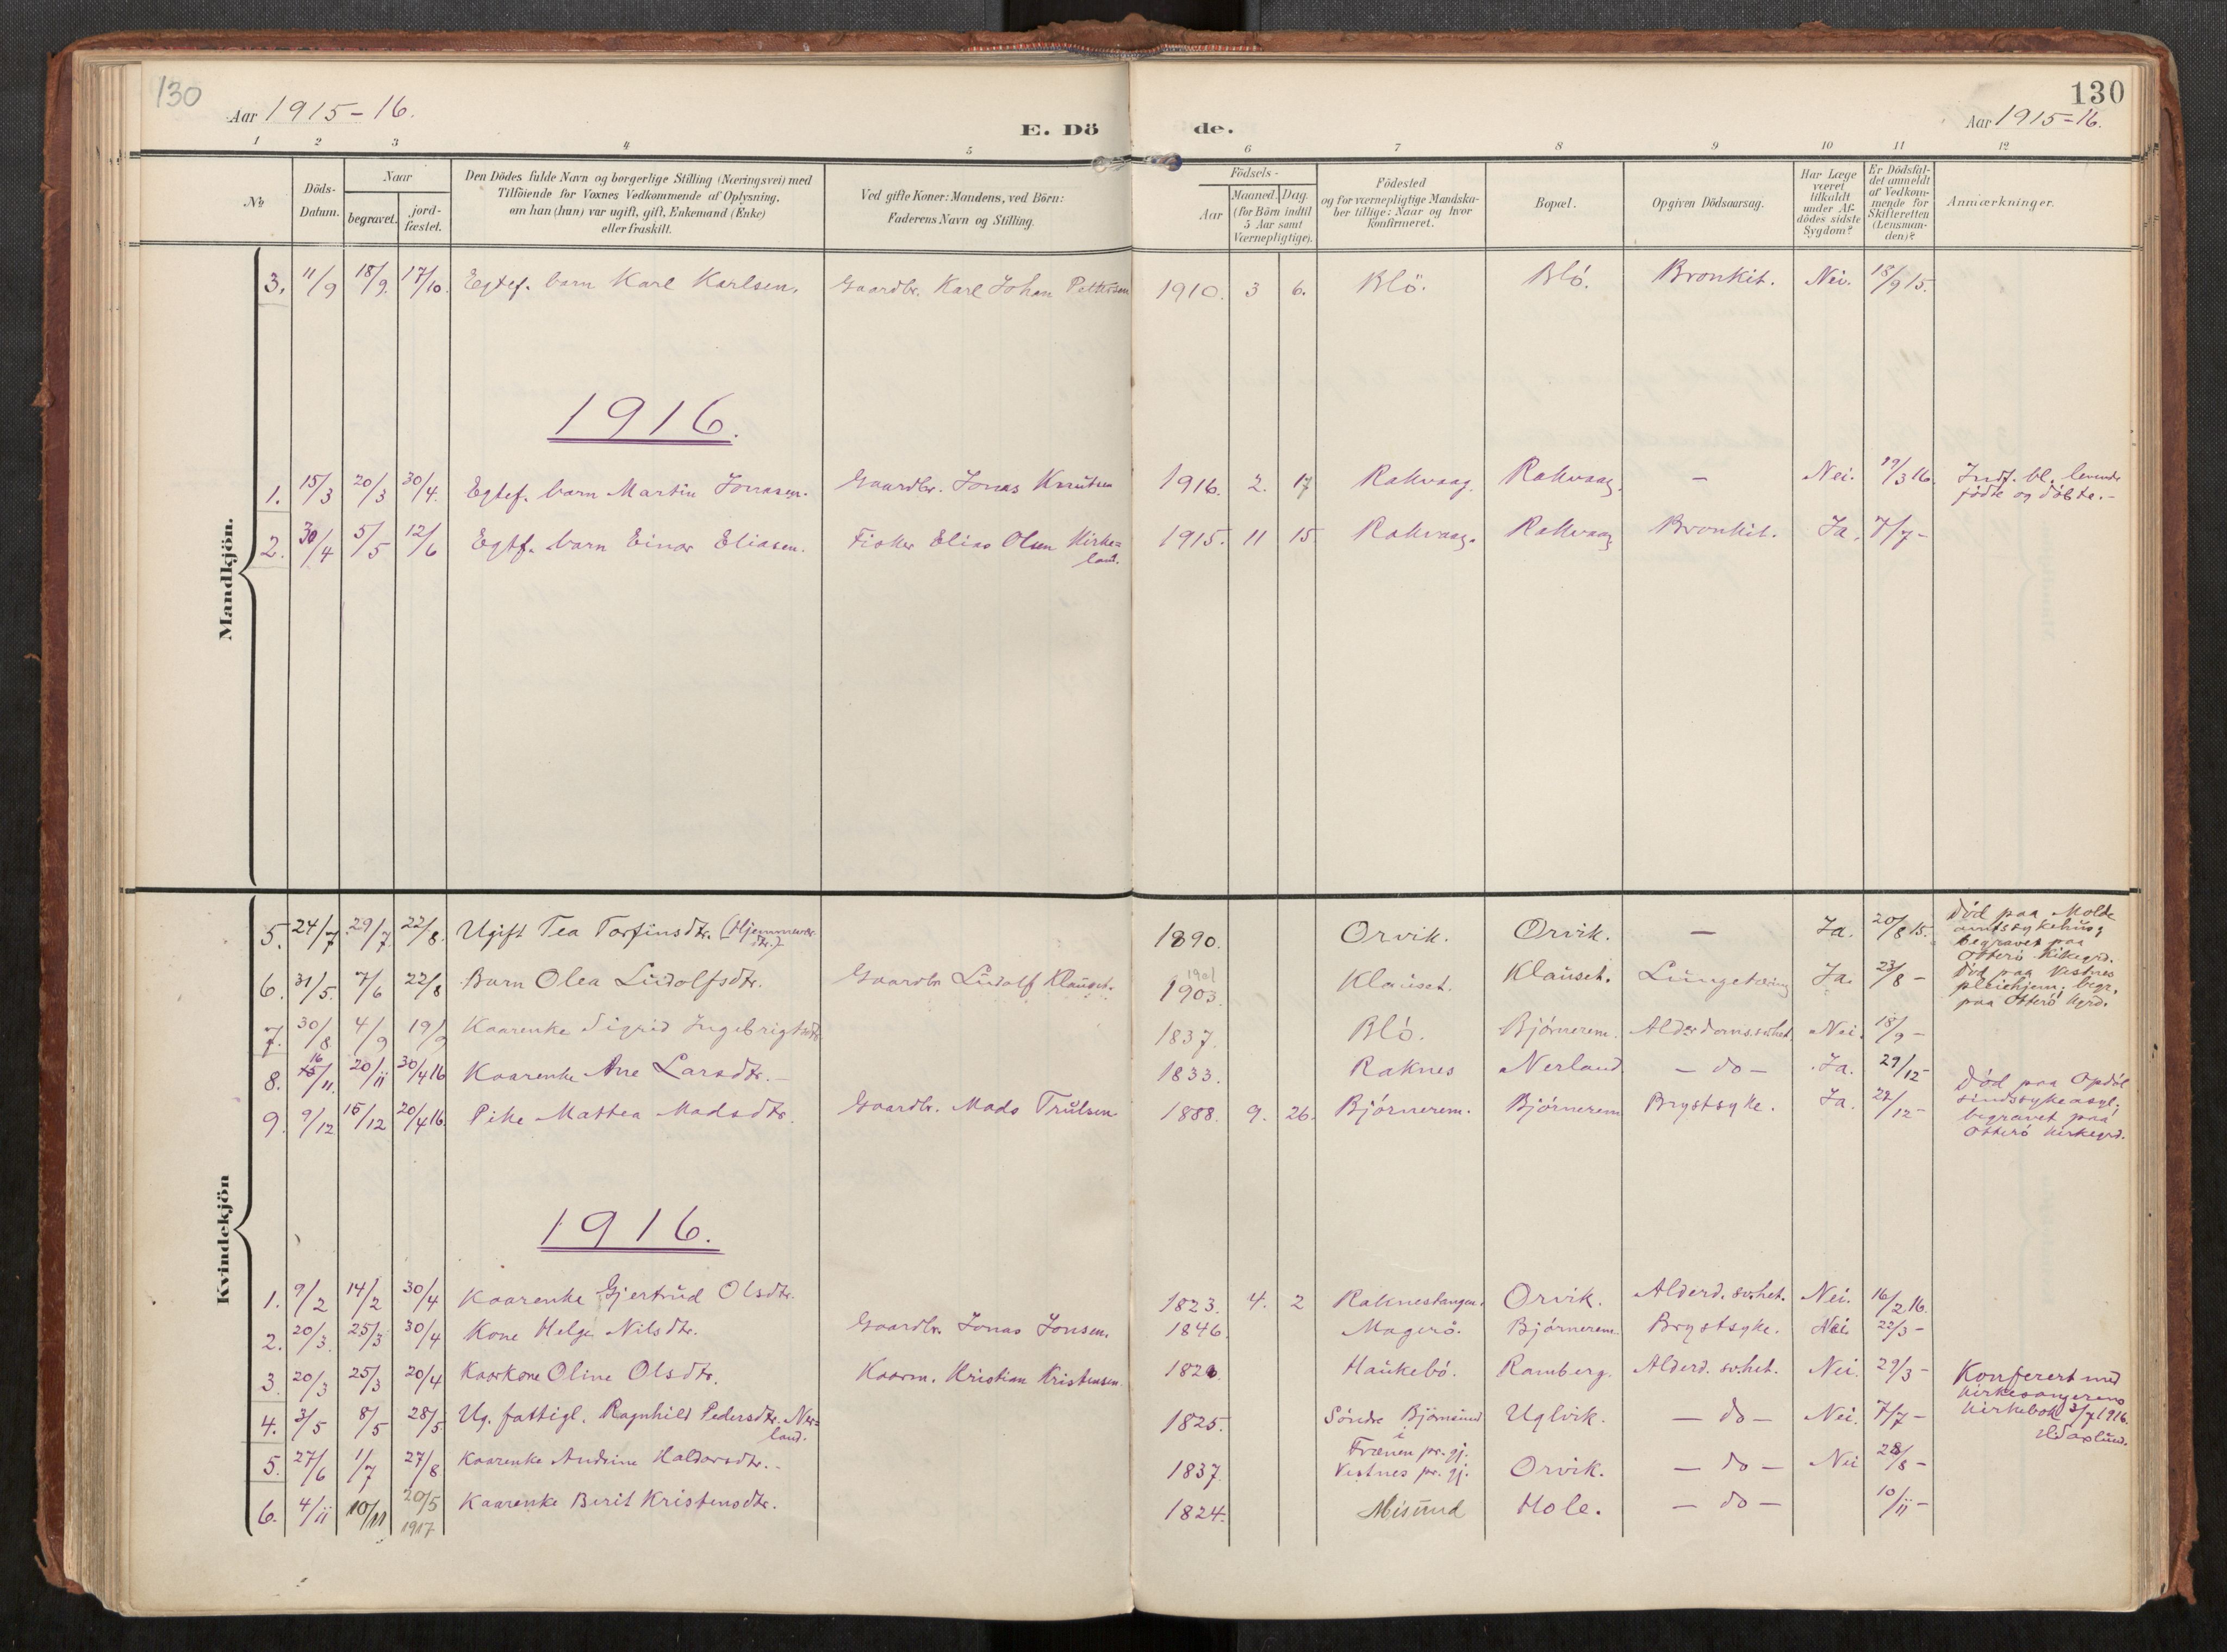 130
Aar 1915-16.
E. Dö
de.
130
Aar 1915-16.
1 2 3 4 5 6 7 8 9 10 11 12
No
Döds-Datum.
Naar
begravet.
jord-fæstet.
Den Dödes fulde Navn og borgerlige Stilling (Næringsvei) med
Tilföiende for Voxnes Vedkommende af Oplysning,
om han (hun) var ugift, gift, Enkemand (Enke)
eller fraskilt.
Ved gifte Koner: Mandens, ved Börn:
Faderens Navn og Stilling.
Födsels-
Aar
Maaned. Dag.
(for Börn indtil
5 Aar samt
Værnepligtige).
Födested
og for værnepligtige Mandska-
ber tillige: Naar og hvor
konfirmeret.
Bopæl.
Opgiven Dödsaarsag.
Har Læge
været
tilkaldt
under Af-
dödes sidste
Sygdom?
Er Dödsfal-
det anmeldt
af Vedkom-
mende for
Skifteretten
(Lensman-
den)?
Anmærkninger.
Mandkjön.
3. 11/9 18/9. 17/10. Egtef. barn Karl Karlsen. Gaardbr. Karl Johan Pettersen 1910. 3 6. Blö. Blö. Bronkit. Nei. 18/9 15.
1916.
1. 15/3 20/3 30/4. Egtef. barn Martin Jonasen. Gaardbr. Jonas Knutsen 1916. 2. 17 Rakvaag. Rakvaag. — Nei. 19/3 16. Indf. bl. levende
födte og döbte.-
2. 30/4 5/5 12/6 Egtf. barn Einar Eliasen. Fisker Elias Olsen Kirke=
land. 1915. 11 15 Rakvaag. Rakvaag. Bronkit. Ja. 7/7 -
Kvindekjön
5. 24/7 29/7 22/8. Ugift Tea Torfinsdtr. (Hjemmevær.
dtr.) 1890. Orvik. Orvik. — Ja. 20/8 15. Död paa Molde
amtssykehus;
begravet paa
Otterö Kikegrd.
6. 31/5. 7/6 22/8 Barn Olea Ludolfsdtr. Gaardbr Ludolf Klauset. 1901
1903. Klauset. Klauset. Lungetæring Ja. 23/8 - Död paa Vestnes
pleiehjem; begr.
paa Otterö kgrd.
7. 30/8 4/9 19/9 Kaarenke Sigrid Ingebrigtsdtr 1837. Blö. Björnerem. Alderdoms.svhet. Nei. 18/9 -
8. 16
15/11. 20/11 30/4 16 Kaarenke Ane Larsdtr.- 1833. Raknes Nerland — do — Ja. 29/12 -
9. 9/12 15/12 20/4 16. Pike Mattea Madsdtr. Gaardbr. Mads Trulsen 1888. 9. 26. Björnerem. Björnerem Brystsyke. Ja. 22/12 - Död paa Opdöl
sindssykeasyl;
begravet paa
Otterö kirkegrd.
1916.
1. 9/2 14/2 30/4 Kaarenke Gjertrud Olsdtr. 1823. 4. 2 Raknestangen. Orvik. Alderd. svhet. Nei. 16/2 16.
2. 20/3. 25/3 30/4 Kone Helge Nilsdtr. Gaardbr. Jonas Jonsen. 1846. Magerö. Björnerem. Brystsyke. Nei. 22/3 -
3. 20/3 25/3 20/4 Kaarkone Oline Olsdtr. Kaarm. Kristian Kristensen. Haukebö. Ramberg. Alderd. svhet. Nei. 29/3 - Konferert med
kirkesangerens
kirkebok 3/7 1916.
4. 3/5 8/5 28/5 Ug. fattigl. Ragnhild Pedersdtr. Ner=
land. 1825. Söndre Björnsund
i
Frænen pr. gj. Uglvik. — do — Nei. 7/7 -
5. 27/6 1/7 27/8 Kaarenke Andrine Haldorsdtr.- 1837. Vestnes pr. gj. Orvik. — do — Nei 28/8 -
6. 4/11 10/11 20/5
1917 Kaarenke Berit Kristensdtr. 1824. Misund Hole. — do — 10/11 -